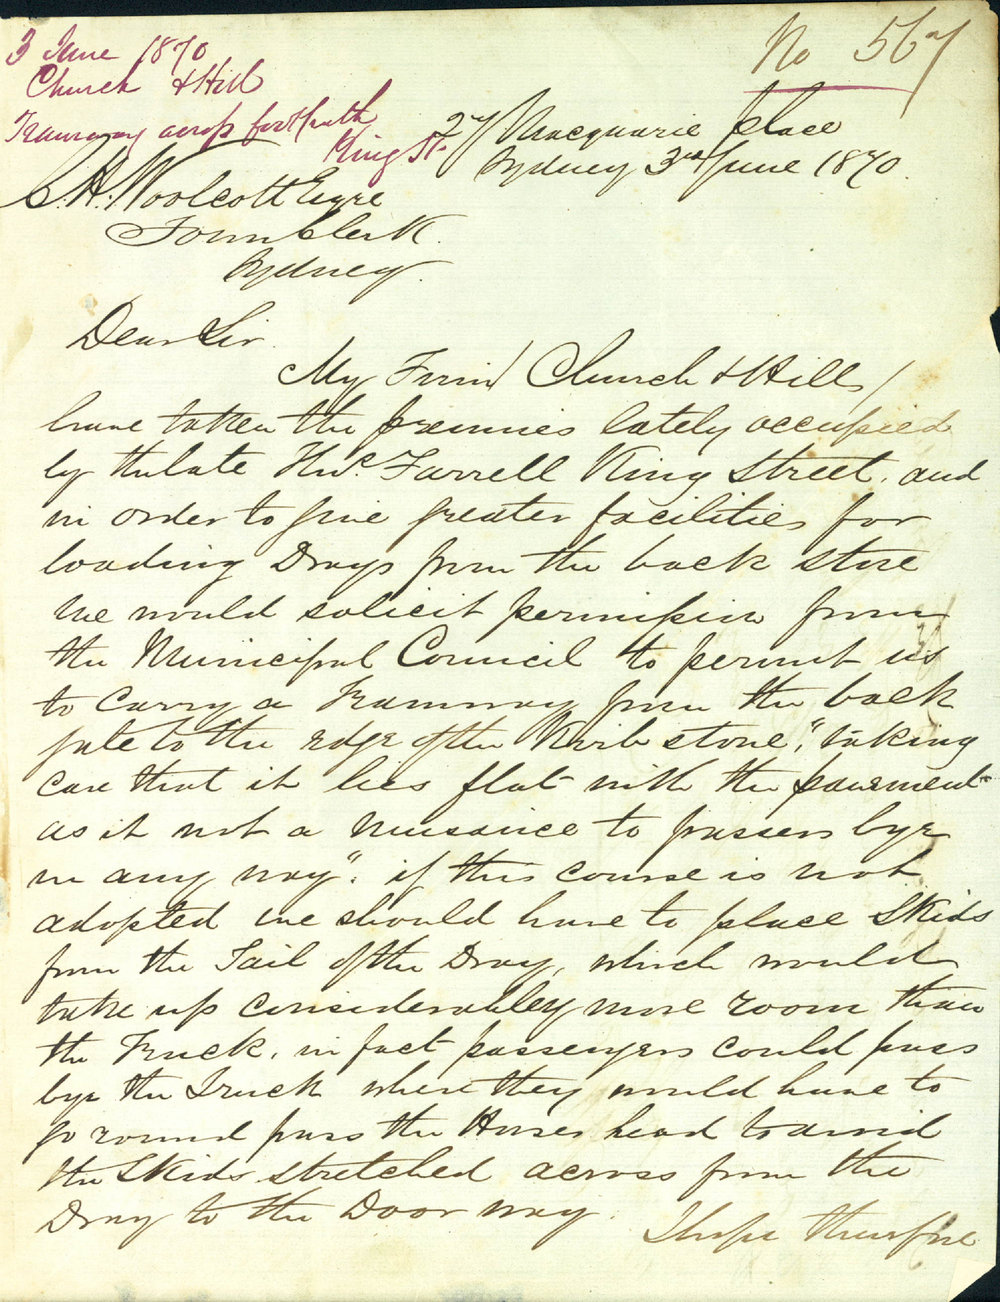 3 June 1870
Church & Hill
Tramway across footpath
King St.
No 567
27 Macquarie place
Sydney 3rd June 1870.
C. H. Woolcott Esqre
Town Clerk
Sydney.
Dear Sir
My Firm (Church & Hill)
have taken the premises lately occupied
by the late Thos. Farrell King Street, and
in order to give greater facilities for
loading Drays from the back store
we would solicit permission from
the Municipal Council to permit us
to carry a Tramway from the back
gate to the edge of the Kirb stone", taking
care that it lies flat with the pavement
as it not a nuisance to passers bye
in any way". if this course is not
adopted we should have to place Skids
from the Tail of the Dray, which would
take up considerabley more room than
the Truck, in fact passengers could pass
bye the Truck when they would have to
go round pass the Horses head to avoid
the Skids stretched across from the
Dray to the Door way.
I hope therefore